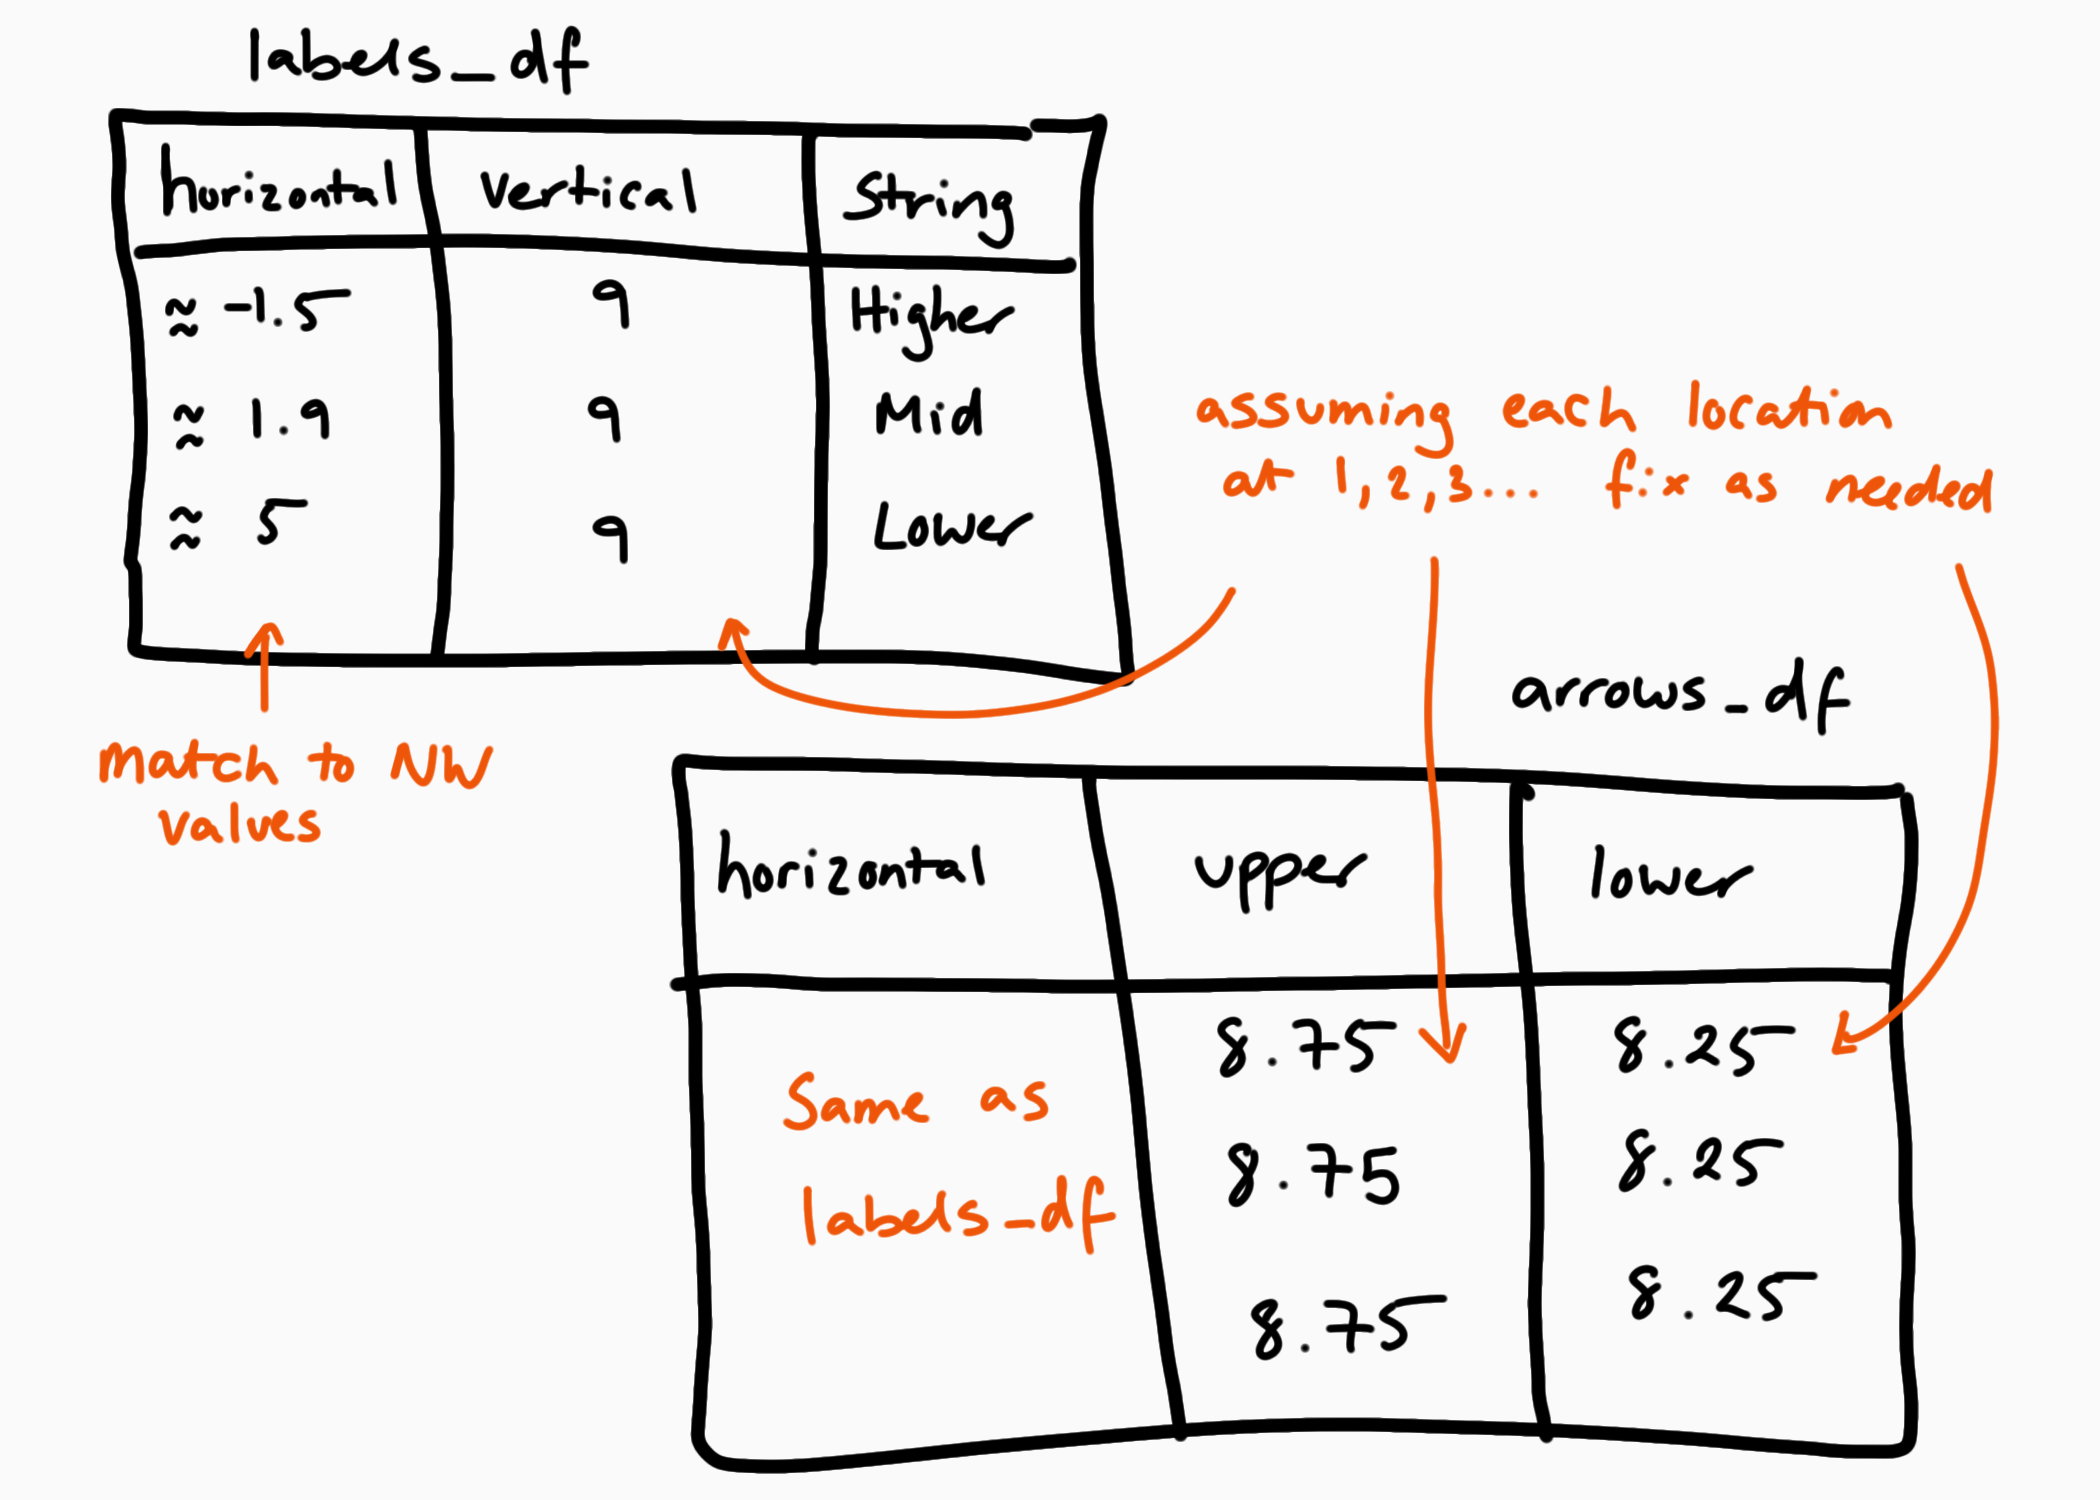 labels_df
horizontal vertical String
≈ -1.5 9 Higher
≈ 1.9 9 Mid
≈ 5 9 Lower
assuming each location
at 1, 2, 3... fix as needed
match to NW
values
arrows_df
horizontal upper lower
8.75 8.25
Same as
8.75 8.25
labels_df
8.75 8.25